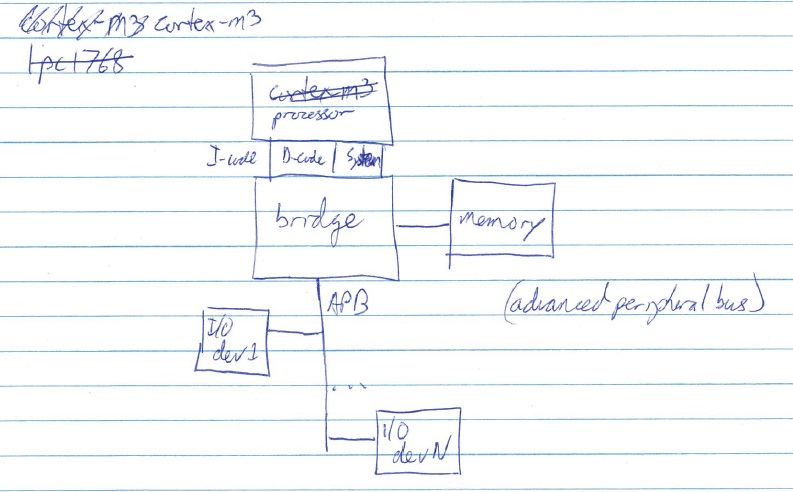 cortex-m3 cortex-m3
lpc1768
cortex-m3
processor
I-code D-code System
bridge
memory
APB
(advanced peripheral bus)
I/O
dev1
...
I/O
devN